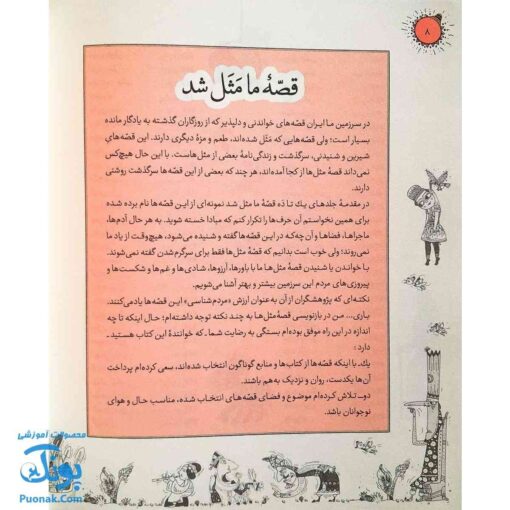 ۸
قصّهٔ ما مَثَل شد
در سرزمین ما ایران قصّه‌های خواندنی و دلپذیر که از روزگاران گذشته به یادگار مانده
بسیار است؛ ولی قصّه‌هایی که مَثَل شده‌اند، طعم و مزهٔ دیگری دارند. این قصّه‌های
شیرین و شنیدنی، سرگذشت و زندگی‌نامهٔ بعضی از مثل‌هاست. با این حال هیچ‌کس
نمی‌داند قصّهٔ مثل‌ها از کجا آمده‌اند، هر چند که بعضی از این قصّه‌ها سرگذشت روشنی
دارند.
در مقدمهٔ جلدهای یک تا ده قصّهٔ ما مثل شد نمونه‌ای از این قصّه‌ها نام برده شده
برای همین نخواستم آن حرف‌ها را تکرار کنم که مبادا خسته شوید. به هر حال آدم‌ها،
ماجراها، فضاها و آن چه‌که در این قصّه‌ها گفته و شنیده می‌شود، هیچ‌وقت از یاد ما
نمی‌روند؛ ولی خوب است بدانیم که قصّهٔ مثل‌ها فقط برای سرگرم‌شدن گفته نمی‌شوند.
با خواندن یا شنیدن قصّهٔ مثل‌ها ما با باورها، آرزوها، شادی‌ها و غم‌ها و شکست‌ها و
پیروزی‌های مردم این سرزمین بیشتر و بهتر آشنا می‌شویم.
نکته‌ای که پژوهشگران از آن به‌عنوان ارزش «مردم‌شناسی» این قصّه‌ها یاد می‌کنند.
باری... من در بازنویسی قصّهٔ مثل‌ها به چند نکته توجه داشته‌ام؛ حال اینکه تا چه
اندازه در این راه موفق بوده‌ام بستگی به رضایت شما ـ که خوانندهٔ این کتاب هستید ـ
دارد؛
یک ـ با اینکه قصّه‌ها از کتاب‌ها و منابع گوناگون انتخاب شده‌اند، سعی کرده‌ام پرداخت
آن‌ها یکدست، روان و نزدیک به‌هم باشند.
دو ـ تلاش کرده‌ام موضوع و فضای قصّه‌های انتخاب شده، مناسب حال و هوای
نوجوانان باشد.
محصولات آموزشی
پونک
Puonak.Com